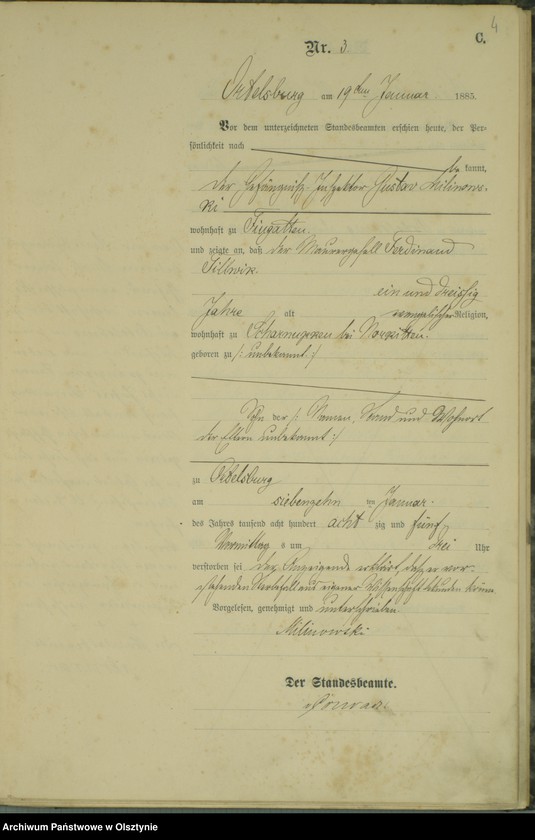 4
C.
Nr. 3
Ortelsburg am 19ten Januar 1885.
Vor dem unterzeichneten Standesbeamten erschien heute, der Per-
sönlichkeit nach
be kannt,
der Gefängniß-Inspektor Gustav Milinows-
ki
wohnhaft zu Fingatten.
und zeigte an, daß der Maurergesell Ferdinand
ein und dreissig
Jahre alt evangelischer Religion,
wohnhaft zu bei Norkitten.
geboren zu /: unbekannt :/
Sohn der /: Namen, Stand und Wohnort
der Eltern unbekannt :/
zu Ortelsburg
am siebenzehn ten Januar
des Jahres tausend acht hundert acht zig und fünf
Vormittag s um drei Uhr
verstorben sei der Anzeigende erklärt daß er vor-
stehenden Sterbefall aus eigener Wissenschaft bekunden könne.
Vorgelesen, genehmigt und unterschrieben
Milinowski
Der Standesbeamte.
Archiwum Państwowe w Olsztynie